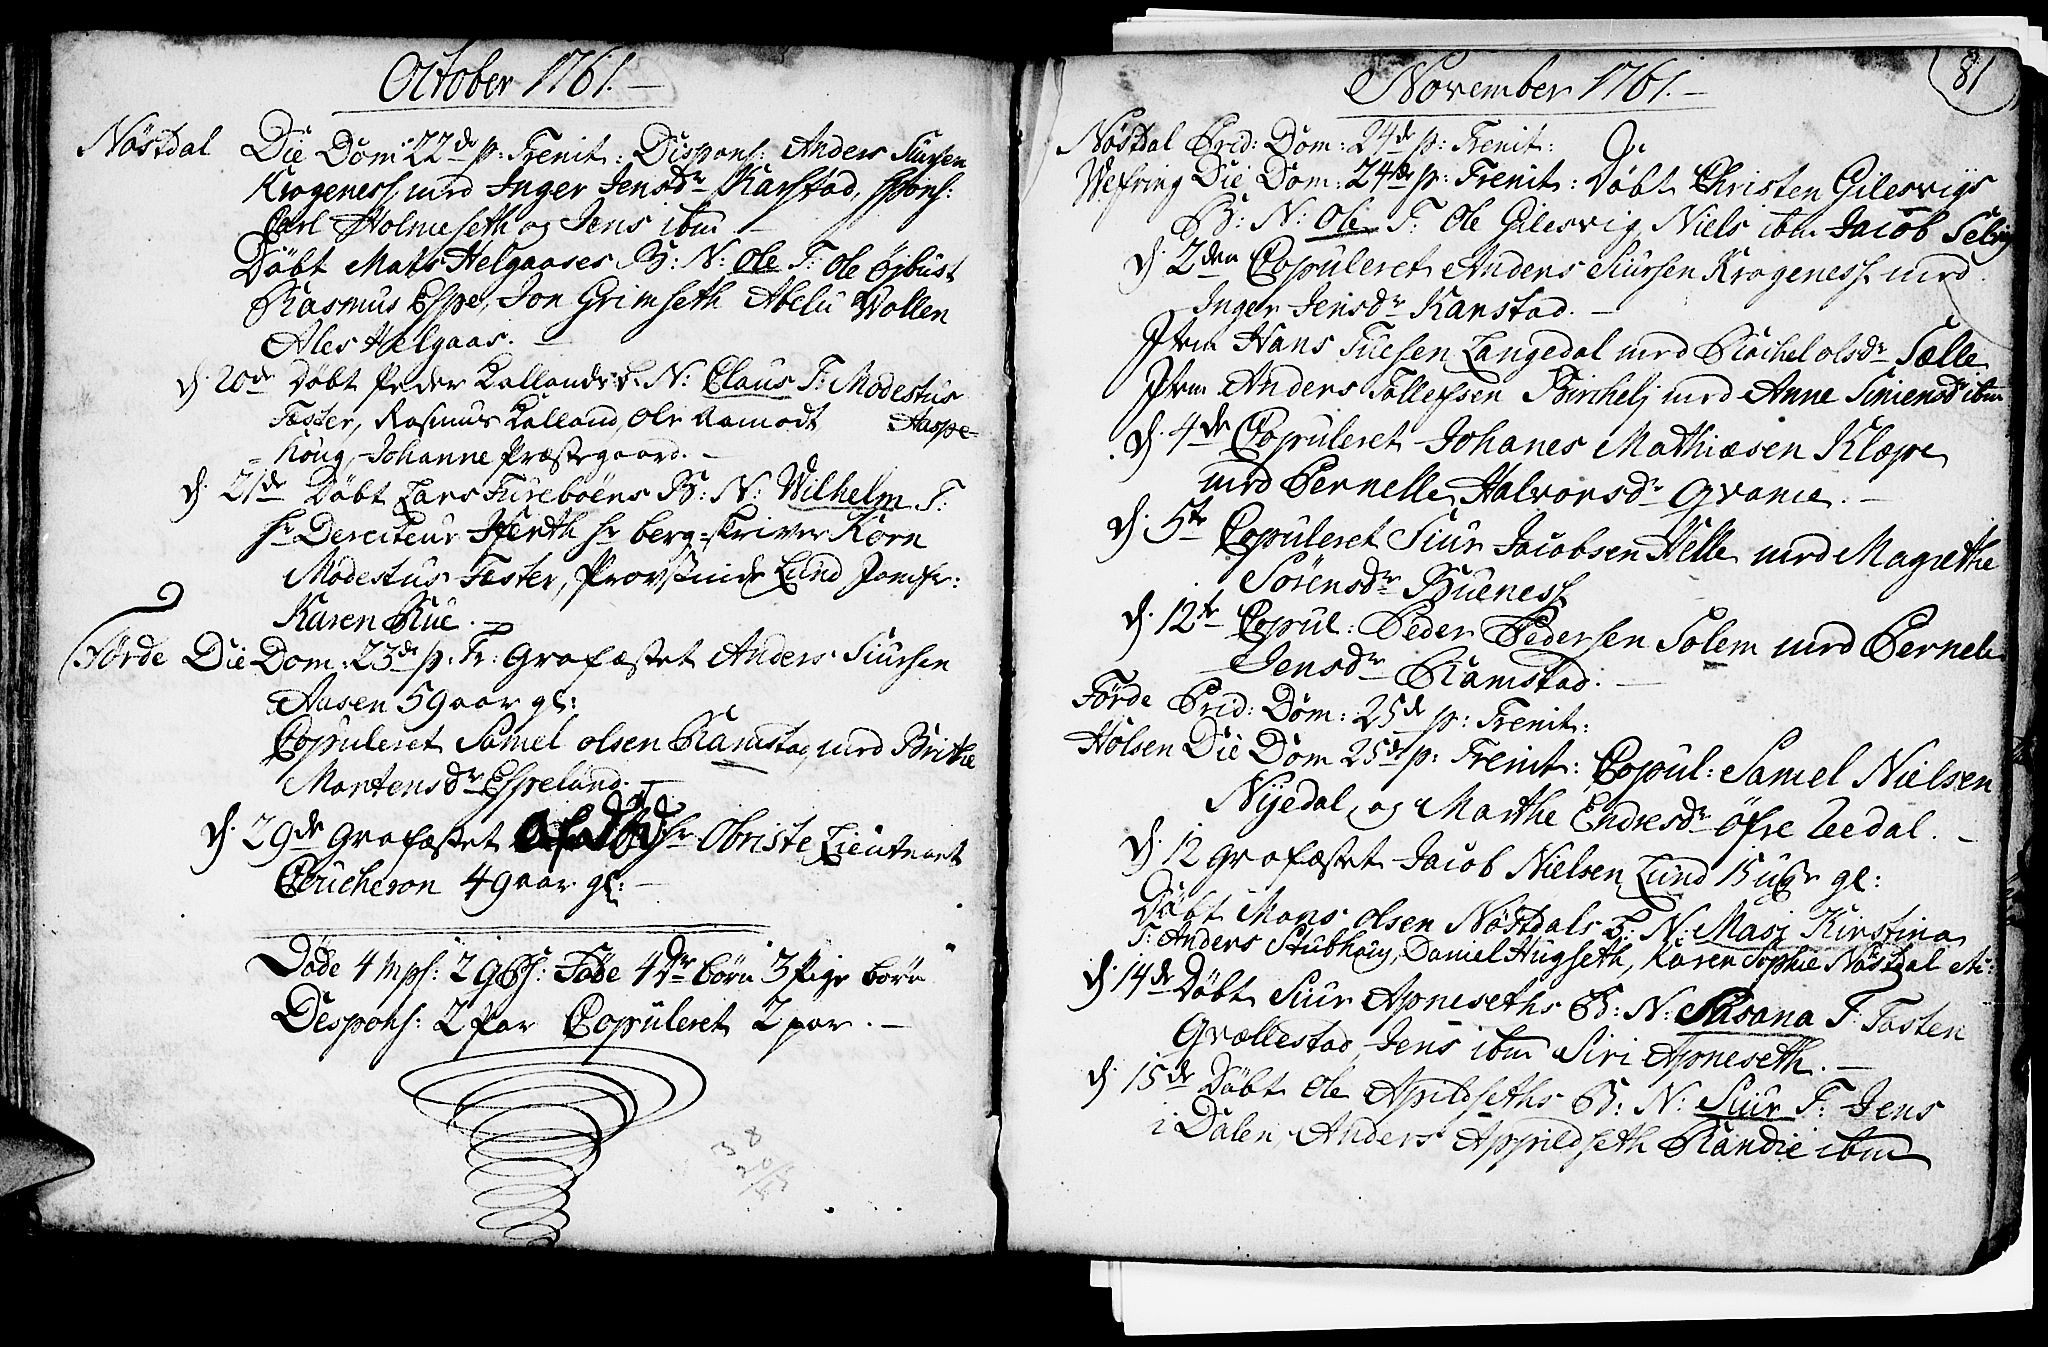 October 1761. —
Nöstdal Die Dom: 22de p: Trenit: Dispons: Anders Siursen
Krogeness med Inger Jensdr Karstad, spons:
Carl Holmeseth og Jens ibm —
Döbt Mats Helgaases B: N: Ole T: Ole öjbust
Rasmus Espe, Jon Grimseth Abelu Wollen
Ales Helgaas. —
d. 20de Döbt Peder Kallands B. N: Claus T: Modestus
Tøster, Rasmus Kalland, Ole Ramodt Haspe-
houg, Johanne Præstegaard. —
d. 21de Döbt Lars Furebøens B: N: Wilhelm T:
Hr Dereiteur Herth Hr berg-skriver Korn
Modestus Tøster, Provstinde Lund Jomfr:
Karen Rue. —
Förde Die Dom: 23de p: Tr: Grafæstet Anders Siursen
Aasen 59 aar gl:
Copuleret Samel olsen Ramstag med Brithe
Mortensdr Espeland. —
d. 29de Grafæstet Hr Obriste Lieutnant
Coucheron 49 aar gl: —
Döde 4 mps: 2 gbs: Föde 4 Dr börn 3 Pige börn
Despons: 2 par Copuleret 2 par. —
38
November 1761. —
81
Nöstdal Prid: Dom: 24de p: Trenit:
Wefring Die Dom: 24de p: Trenit: Döbt Christen Gilesvigs
B: N: Ole T: Ole Gilesvig Niels ibm Jacob Selvig
d. 2den Copuleret Anders Siursen Krogeness med
Inger Jensdr Karstad. —
Item Hans Tuesen Langedal med Rachel olsdr Sælle
Item Anders Tollefsen Birchelj med Anne Simensdr ibm
d. 4de Copuleret Johanes Mathiæsen Klæpe
med Pernelle Halvorsdr Qvame. —
d. 5te Copuleret Siur Jacobsen Helle med Magrethe
Sörensdr Bueness
d. 12te Copul: Peder Pedersen Solem med Pernele
Jensdr Ramstad. —
Förde Prid: Dom: 25de p: Trenit:
Holsen Die Dom 25de p: Trenit: Copul: Samel Nielsen
Nijedal og Marthe Endresdr öfre Leedal. —
d. 12 grafæstet Jacob Nielsen Lund 15 uger gl:
Döbt Mons olsen Nöstdals B. N: Masi Kirstina
T: Anders Stubhoug, Daniel Hugseth, Karen Sophie Nöstdal
d. 14de Döbt Siur Apneseths B: N: Susana T: Tosten
Grællestad, Jens ibm Siri Apneseth. —
d. 15de Döbt Ole Apildseths B: N: Siur T: Jens
i Dalen, Anders Appildseth Randie ibm